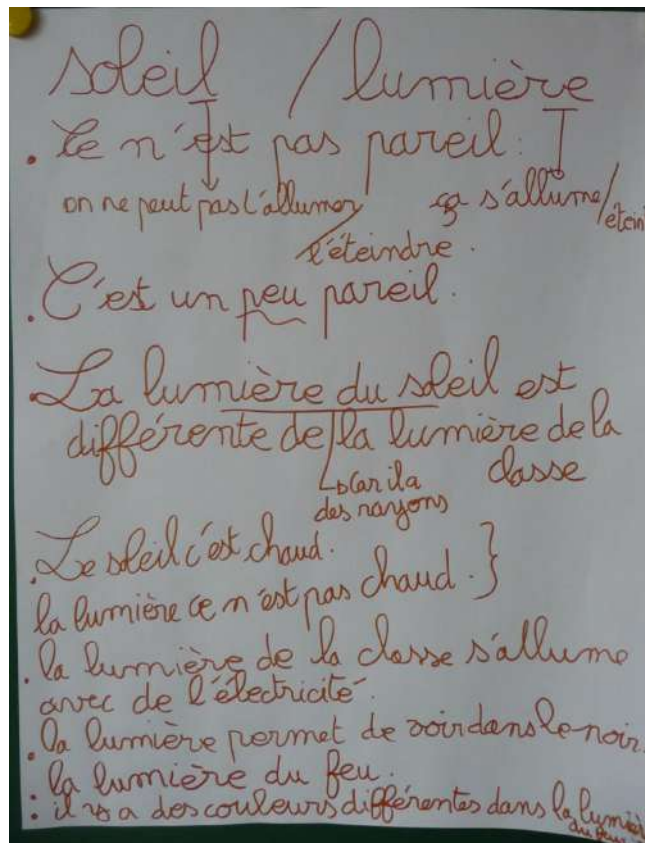 soleil / lumière
. Ce n'est pas pareil :
on ne peut pas l'allumer/
l'éteindre.
ça s'allume/
éteint
. C'est un peu pareil.
. La lumière du soleil est
différente de la lumière de la
classe
car il a
des rayons
. Le soleil c'est chaud.
la lumière ce n'est pas chaud. }
. la lumière de la classe s'allume
avec de l'électricité.
. la lumière permet de voir dans le noir.
. la lumière du feu.
. il y a des couleurs différentes dans la
du feu